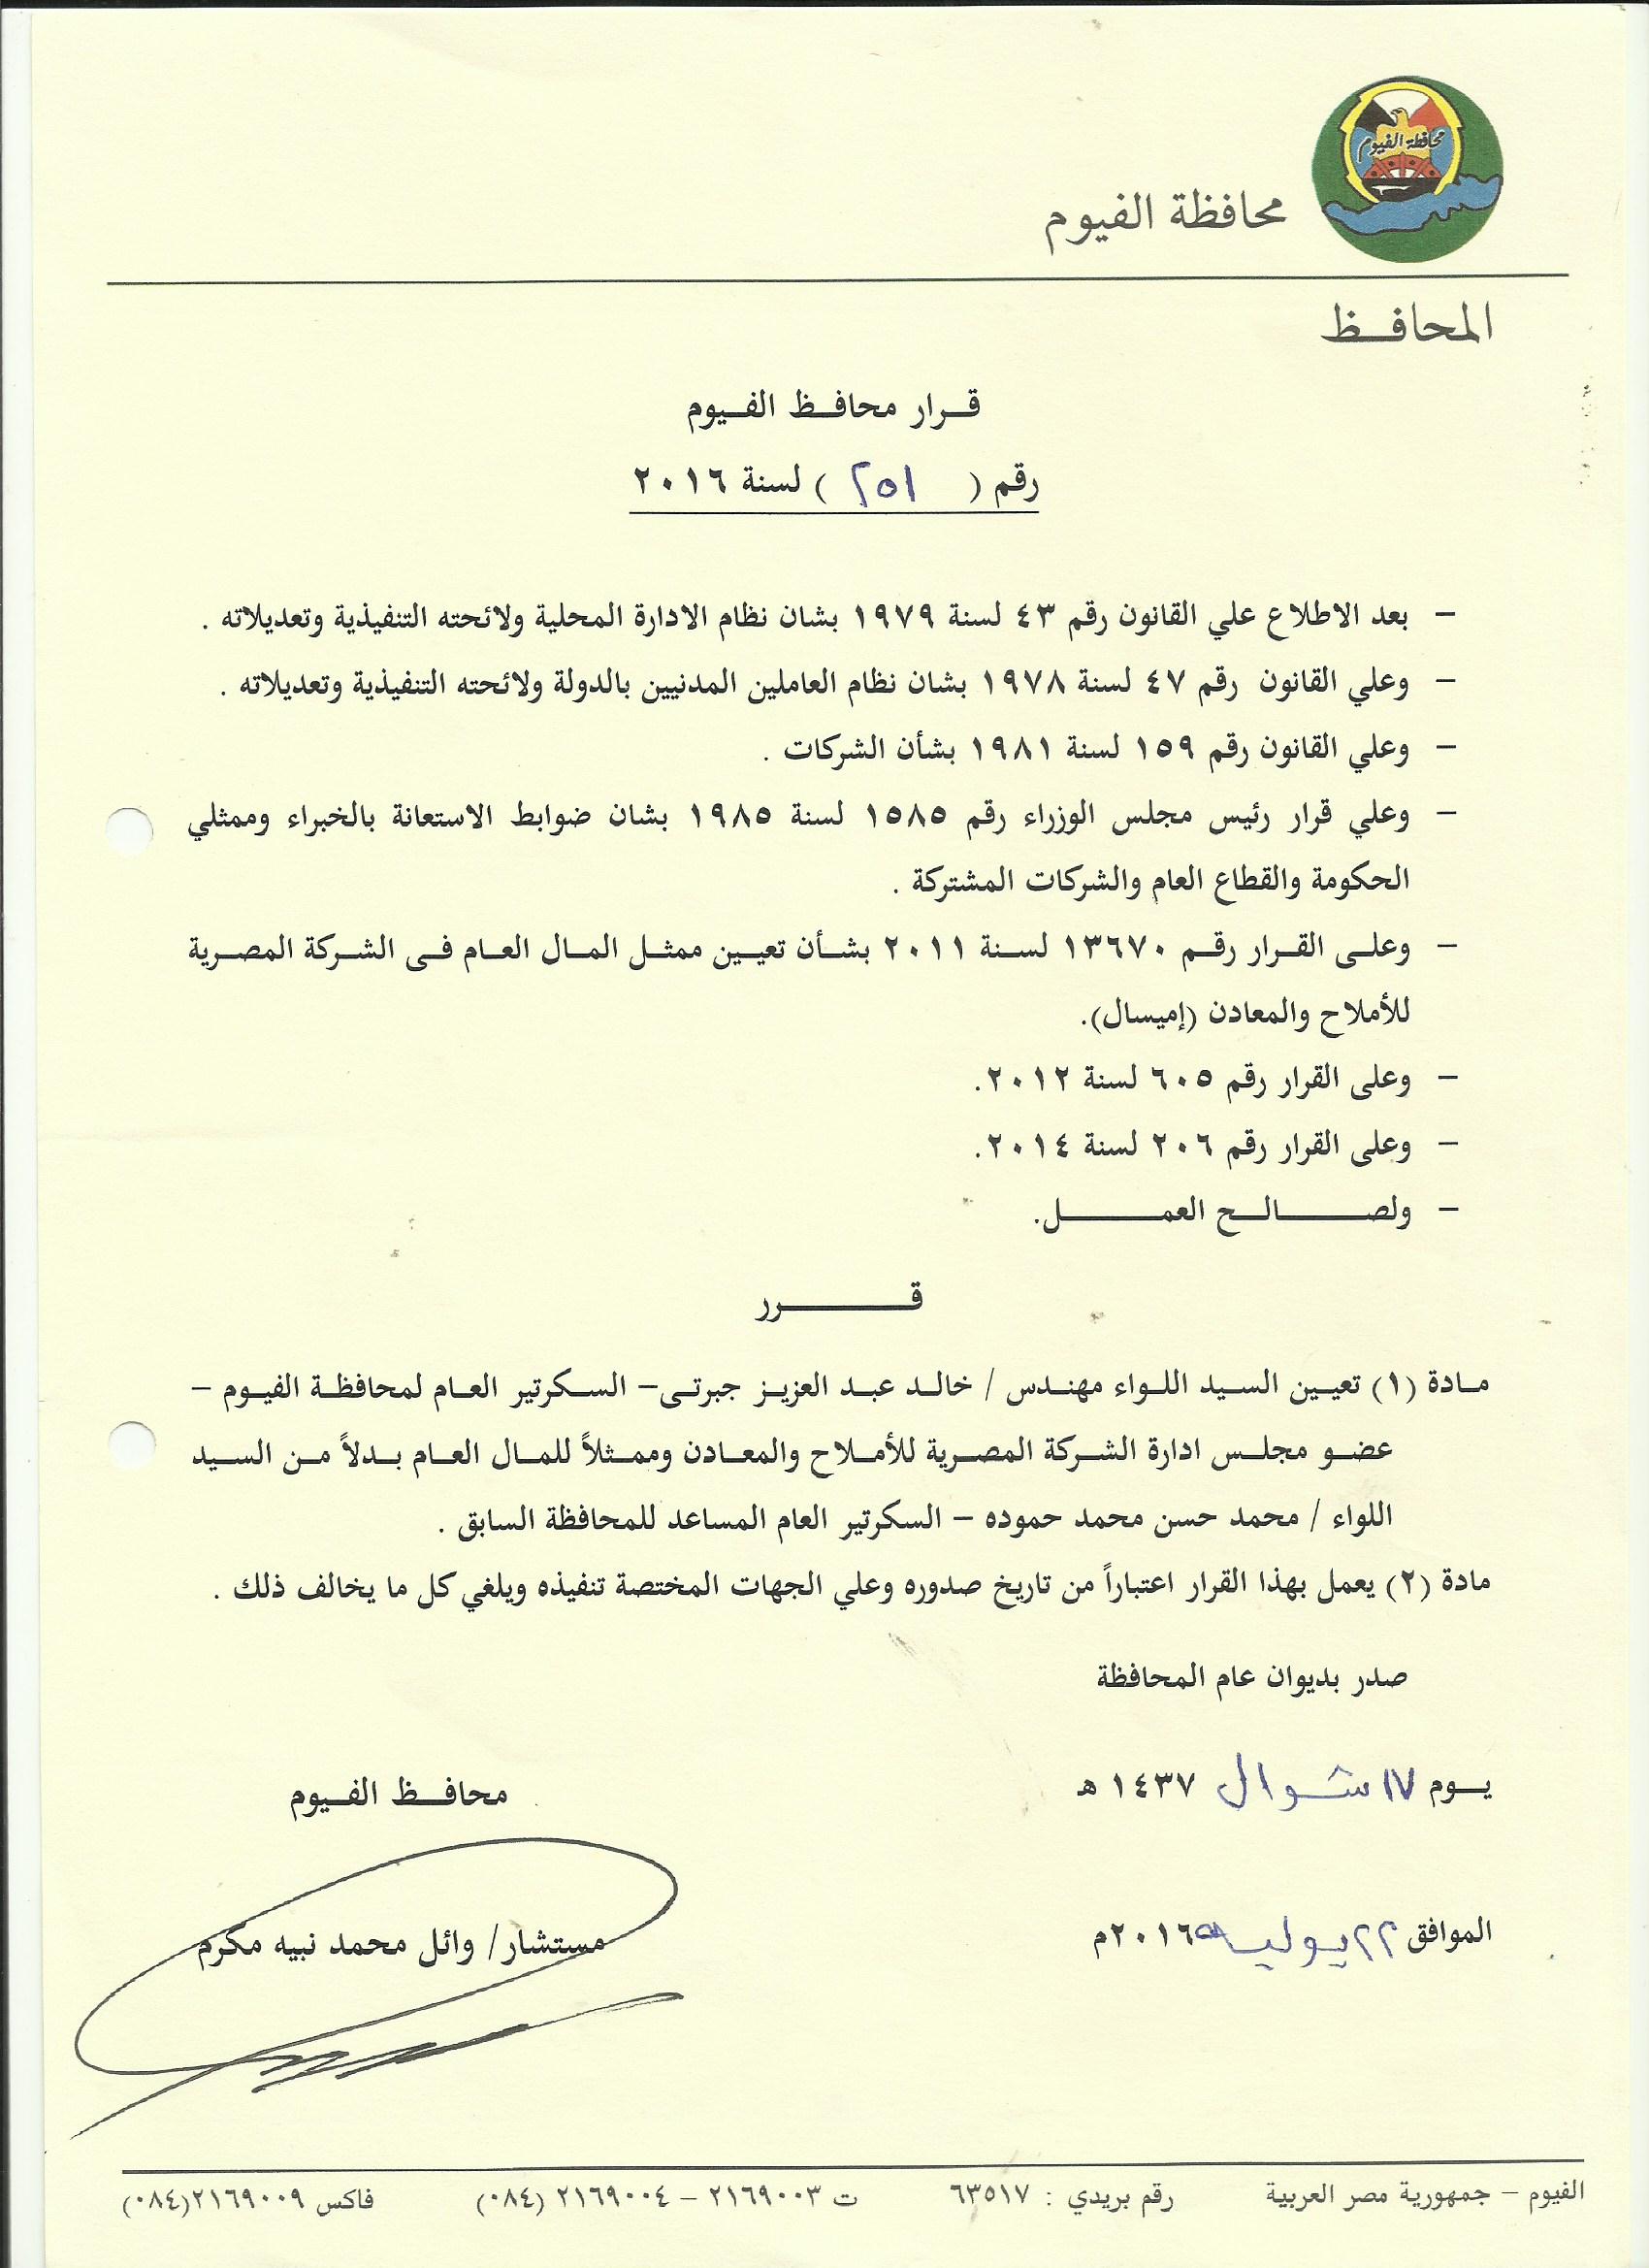 محافظة الفيوم
محافظة الفيوم
المحافـظ
قـرار محافـظ الفـيوم
رقم ( ٢٥١ ) لسنة ٢٠١٦
– بعد الاطلاع علي القانون رقم ٤٣ لسنة ١٩٧٩ بشان نظام الادارة المحلية ولائحته التنفيذية وتعديلاته .
– وعلي القانون رقم ٤٧ لسنة ١٩٧٨ بشان نظام العاملين المدنيين بالدولة ولائحته التنفيذية وتعديلاته .
– وعلي القانون رقم ١٥٩ لسنة ١٩٨١ بشأن الشركات .
– وعلي قرار رئيس مجلس الوزراء رقم ١٥٨٥ لسنة ١٩٨٥ بشان ضوابط الاستعانة بالخبراء وممثلي
الحكومة والقطاع العام والشركات المشتركة .
– وعلـى القـرار رقـم ١٣٦٧٠ لسـنة ٢٠١١ بشـأن تعيـين ممثـل المـال العـام فـى الشـركة المصـرية
للأملاح والمعادن (إميسال).
– وعلى القرار رقم ٦٠٥ لسنة ٢٠١٢.
– وعلى القرار رقم ٢٠٦ لسنة ٢٠١٤.
– ولصـــــالـح العمـــــــل.
قـــــــرر
مـادة (١) تعيـين السـيد اللـواء مهنـدس / خالـد عبـد العزيـز جبرتـى– السـكرتير العـام لمحافظـة الفيـوم –
عضـو مجلـس ادارة الشـركة المصـرية للأمـلاح والمعـادن وممـثلاً للمـال العـام بـدلاً مـن السـيد
اللواء / محمد حسن محمد حموده – السكرتير العام المساعد للمحافظة السابق .
مادة (٢) يعمل بهذا القرار اعتباراً من تاريخ صدوره وعلي الجهات المختصة تنفيذه ويلغي كل ما يخالف ذلك .
صدر بديوان عام المحافظة
يـوم ١٧ شوال ١٤٣٧ هـ
محافـظ الفـيوم
الموافق ٢٢ يوليه ٢٠١٦م
مستشار/ وائل محمد نبيه مكرم
الفيوم – جمهورية مصر العربية رقم بريدي : ٦٣٥١٧ ت ٢١٦٩٠٠٣ – ٢١٦٩٠٠٤ (٠٨٤) فاكس ٢١٦٩٠٠٩(٠٨٤)